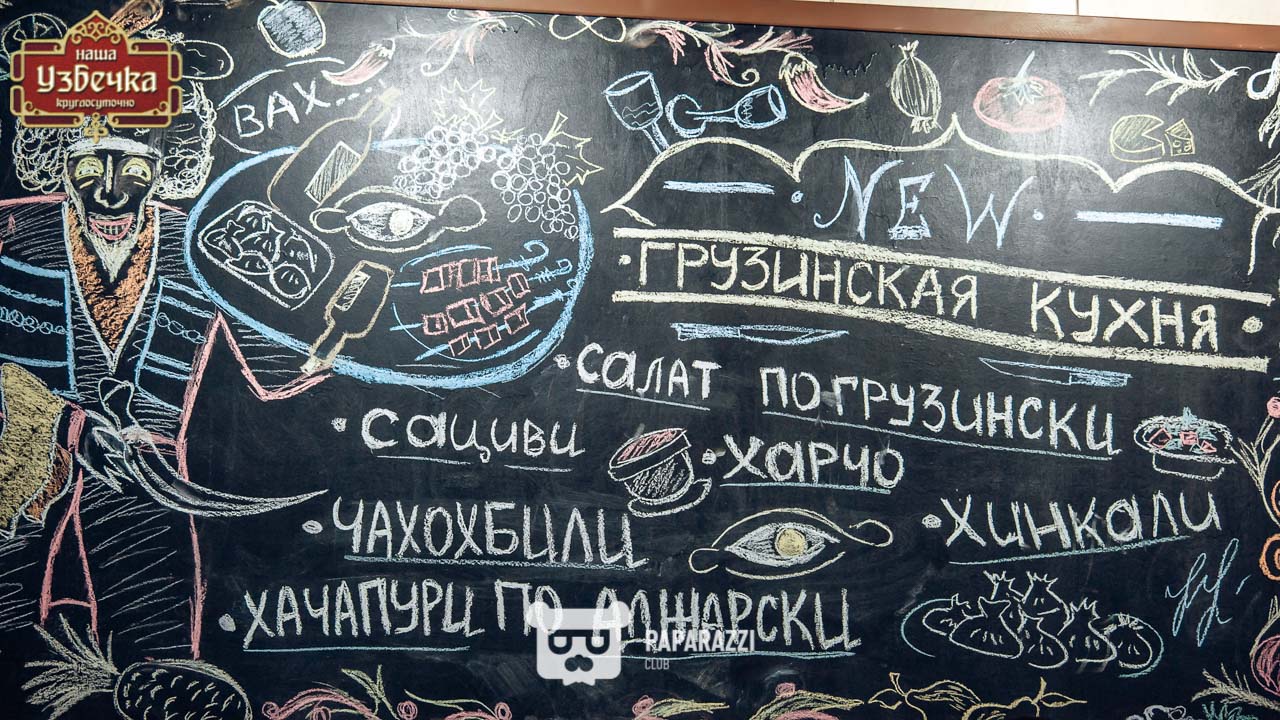 наша
Узбечка
круглосуточно
ВАХ...
NEW
ГРУЗИНСКАЯ КУХНЯ
САЛАТ ПО-ГРУЗИНСКИ
САЦИВИ
ХАРЧО
ЧАХОХБИЛИ
ХИНКАЛИ
ХАЧАПУРИ ПО АДЖАРСКИ
PAPARAZZI
CLUB